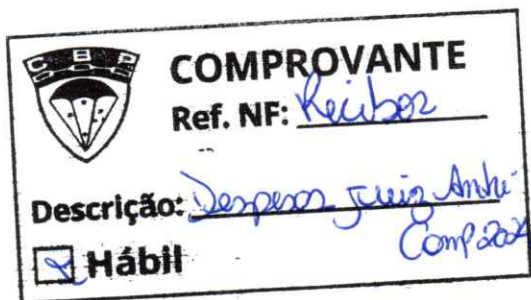 CBP
COMPROVANTE
Ref. NF: Recibos
Descrição: Despesas Juiz André
Comp 2022
Hábil